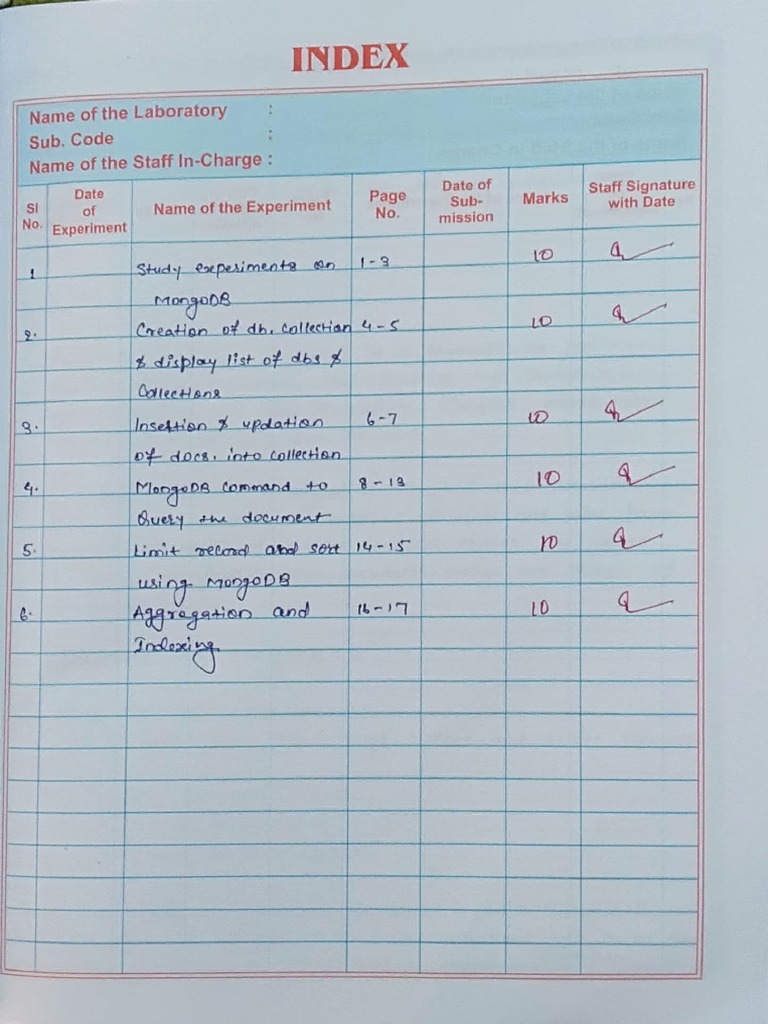 INDEX
Name of the Laboratory :
Sub. Code :
Name of the Staff In-Charge :
Sl No. Date of Experiment Name of the Experiment Page No. Date of Sub-mission Marks Staff Signature with Date
1 Study experiments on 1-3 10
MongoDB
2. Creation of db, collection 4-5 10
& display list of dbs &
Collections
3. Insertion & updation 6-7 10
of docs. into collection
4. MongoDB Command to 8-13 10
Query the document
5. Limit record and sort 14-15 10
using MongoDB
6. Aggregation and 16-17 10
Indexing